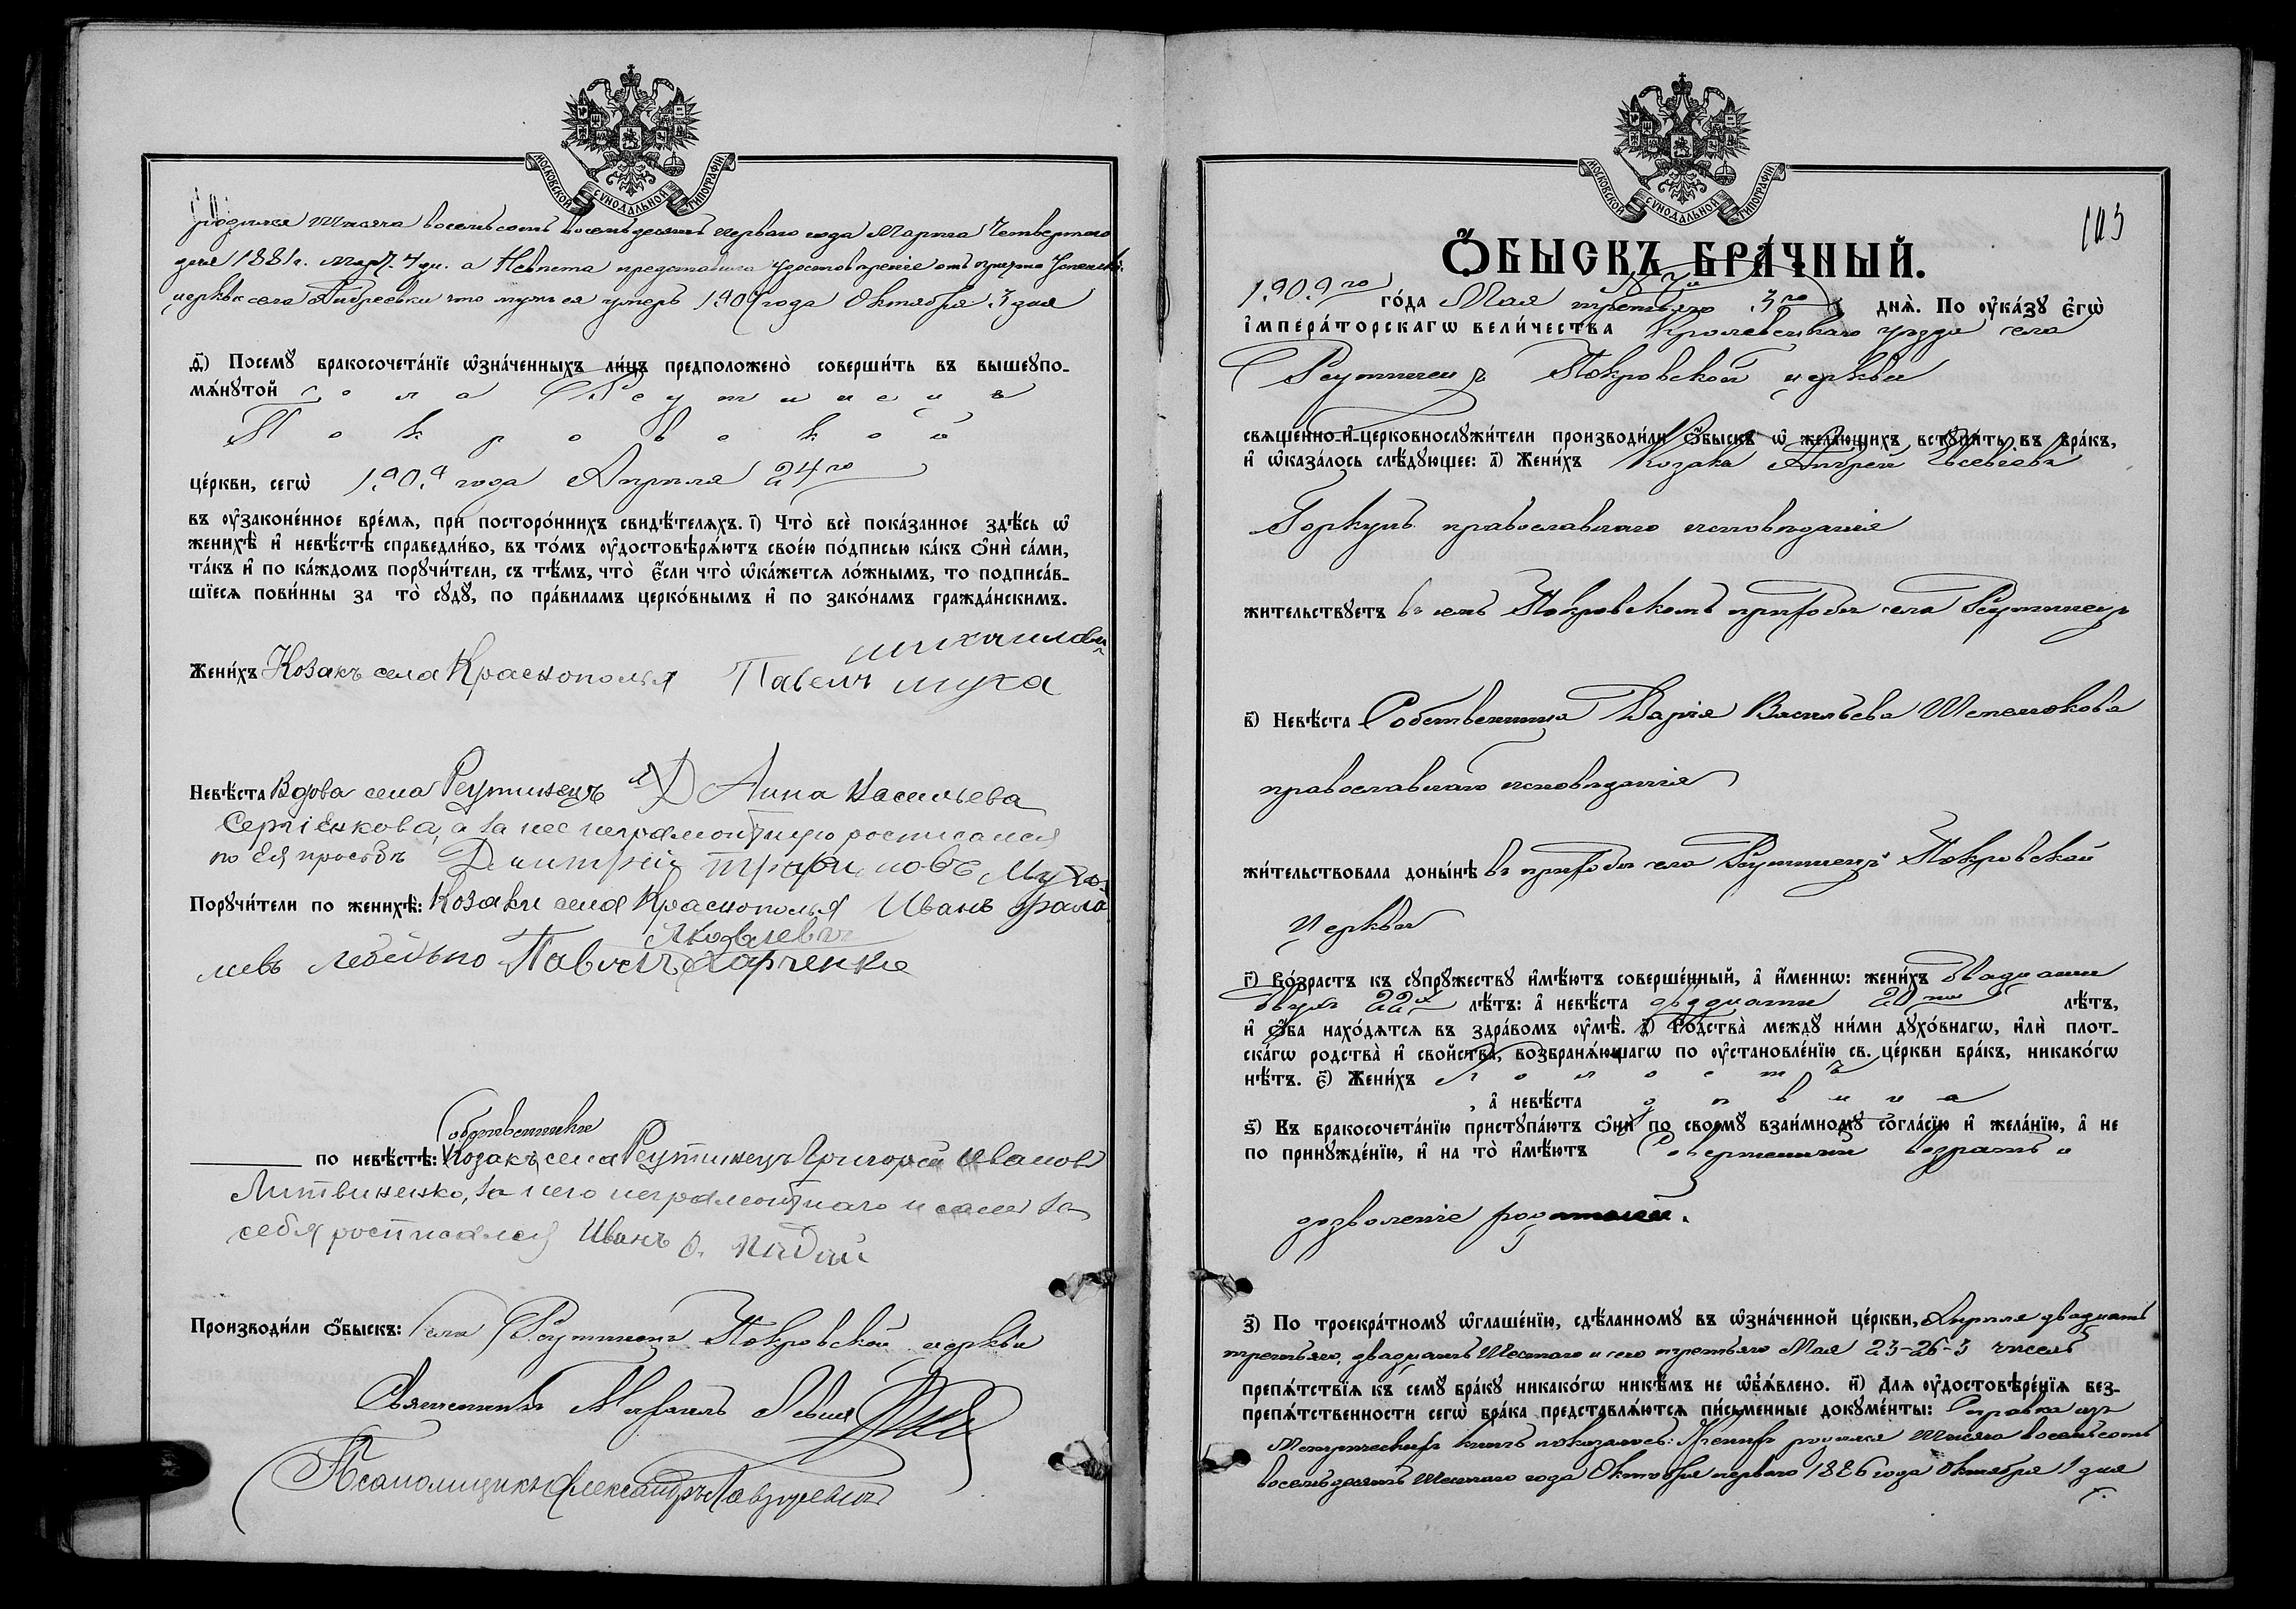 МОСКОВСКОЙ СУНОДАЛЬНОЙ ТИПОГРАФІИ
родился тысяча восемьсотъ восемьдесятъ перваго года Марта Четвертаго
дня 1881 г. Март. 4 дн. а Невѣста представила удостовѣреніе отъ причта Успенской
церкви села Андреевки что мужъ ея умеръ 1907 года Октября 3 дня
д҃) Посемꙋ бракосочета́нїе ѡ҆зна́ченныхъ ли́цъ предположено̀ соверши́ть въ вышеупо-
мѧ́нꙋтой села Реутинецъ
Покровской
це́ркви, сегѡ̀ 1909 года Апрѣля 24го
въ ᲂу҆законе́нное вре́мѧ, при посторо́ннихъ свидѣ́телѧхъ. і҃) Что̀ всѐ пока́занное здѣ́сь ѡ҆
женихѣ̀ и҆ невѣ́стѣ справедли́во, въ то́мъ ᲂу҆достовѣрѧ́ютъ свое́ю по́дписью ка́къ ѻ҆нѝ са́ми,
та́къ и҆ по ка́ждомъ порꙋчи́тели, съ тѣ́мъ, что̀ є҆́сли что̀ ѡ҆ка́жетсѧ ло́жнымъ, то подписа́в-
шїесѧ пови́нны за то̀ сꙋдꙋ̀, по пра́виламъ церко́внымъ и҆ по зако́намъ гражда́нскимъ.
михаиловъ
Жени́хъ Козакъ села Краснополья Павелъ муха
Невѣ́ста Вдова села Реутинецъ Анна Васильева
Сергіенкова, а за нее неграмотную росписался
по Ея просьбѣ Дмитрій Мухо-
Порꙋчи́тели по женихѣ̀: Козаки села Краснополья Иванъ
Яковлевичъ
Павелъ Харченко
Собственники
по невѣ́стѣ: Козакъ села Реутинецъ Григорій Ивановъ
Литвиненко, за него неграмотнаго и самъ за
себя росписался Иванъ
Производи́ли ѻ҆́быскъ: села Реутинецъ Покровской церкви
Священникъ Михаилъ
Псаломщикъ Александръ
МОСКОВСКОЙ СУНОДАЛЬНОЙ ТИПОГРАФІИ
103
Ѻ҆́БЫСКЪ БРА́ЧНЫЙ.
1909го го́да Мая третьяго 3го днѧ̀. По ᲂу҆ка́зꙋ є҆гѡ̀
і҆мпера́торскагѡ вели́чества Кролевецкаго уѣзда села
Реутинецъ Покровской церкви
свѧще́нно-и҆-церковнослꙋжи́тели производи́ли ѻ҆́быскъ ѡ҆ жела́ющихъ встꙋпи́ть въ бра́къ,
и҆ ѡ҆каза́лось слѣ́дꙋющее: а҃) Жени́хъ Козакъ Андрей Евсевіевъ
Горкунъ православнаго исповѣданія
жи́тельствꙋетъ въ семъ Покровскомъ приходѣ села Реутинецъ
в҃) Невѣ́ста Собственница Дарія Васильева Шепелюкова
православнаго исповѣданія
жи́тельствовала доны́нѣ въ приходѣ села Реутинецъ Покровской
Церкви
г҃) Во́зрастъ къ сꙋпрꙋ́жествꙋ и҆мѣ́ютъ соверше́нный, а҆ и҆́меннѡ: жени́хъ двадцати
двухъ 22хъ лѣ́тъ: а҆ невѣ́ста двадцати 20ти лѣ́тъ,
и҆ ѻ҆́ба нахо́дѧтсѧ въ здра́вомъ ᲂу҆мѣ̀. д҃) Ро́дства̀ междꙋ ни́ми дꙋхо́внагѡ, и҆лѝ плот-
ска́гѡ родства̀ и҆ свойства̀, возбранѧ́ющагѡ по ᲂу҆становле́нїю св. це́ркви бра́къ, никако́гѡ
нѣ́тъ. є҃) Жени́хъ холостъ
, а҆ невѣ́ста дѣвица
ѕ҃) Въ бракосочета́нїю пристꙋпа́ютъ ѻ҆нѝ по своемꙋ̀ взаи́мномꙋ согла́сїю и҆ жела́нїю, а҆ не
по принꙋжде́нїю, и҆ на то̀ и҆мѣ́ютъ Совершенный возрастъ и
дозволеніе родителей.
з҃) По троекра́тномꙋ ѡ҆глаше́нїю, сдѣ́ланномꙋ въ ѡ҆зна́ченной це́ркви, Апрѣля двадцать
третьяго, двадцать Шестаго и сего третьяго Мая 23-26-3 числъ
препѧ́тствїѧ къ семꙋ̀ бра́кꙋ никако́гѡ никѣ́мъ не ѡ҆б̾ѧ́влено. и҃) Для ᲂу҆достовѣре́нїѧ без-
препѧ́тственности сегѡ̀ бра́ка представлѧ́ютсѧ пи́сьменные докꙋме́нты: Справка изъ
Метрическихъ книгъ показалось: Женихъ родился тысяча восемьсотъ
восемьдесятъ Шестаго года Октября перваго 1886 года Октября 1 дня